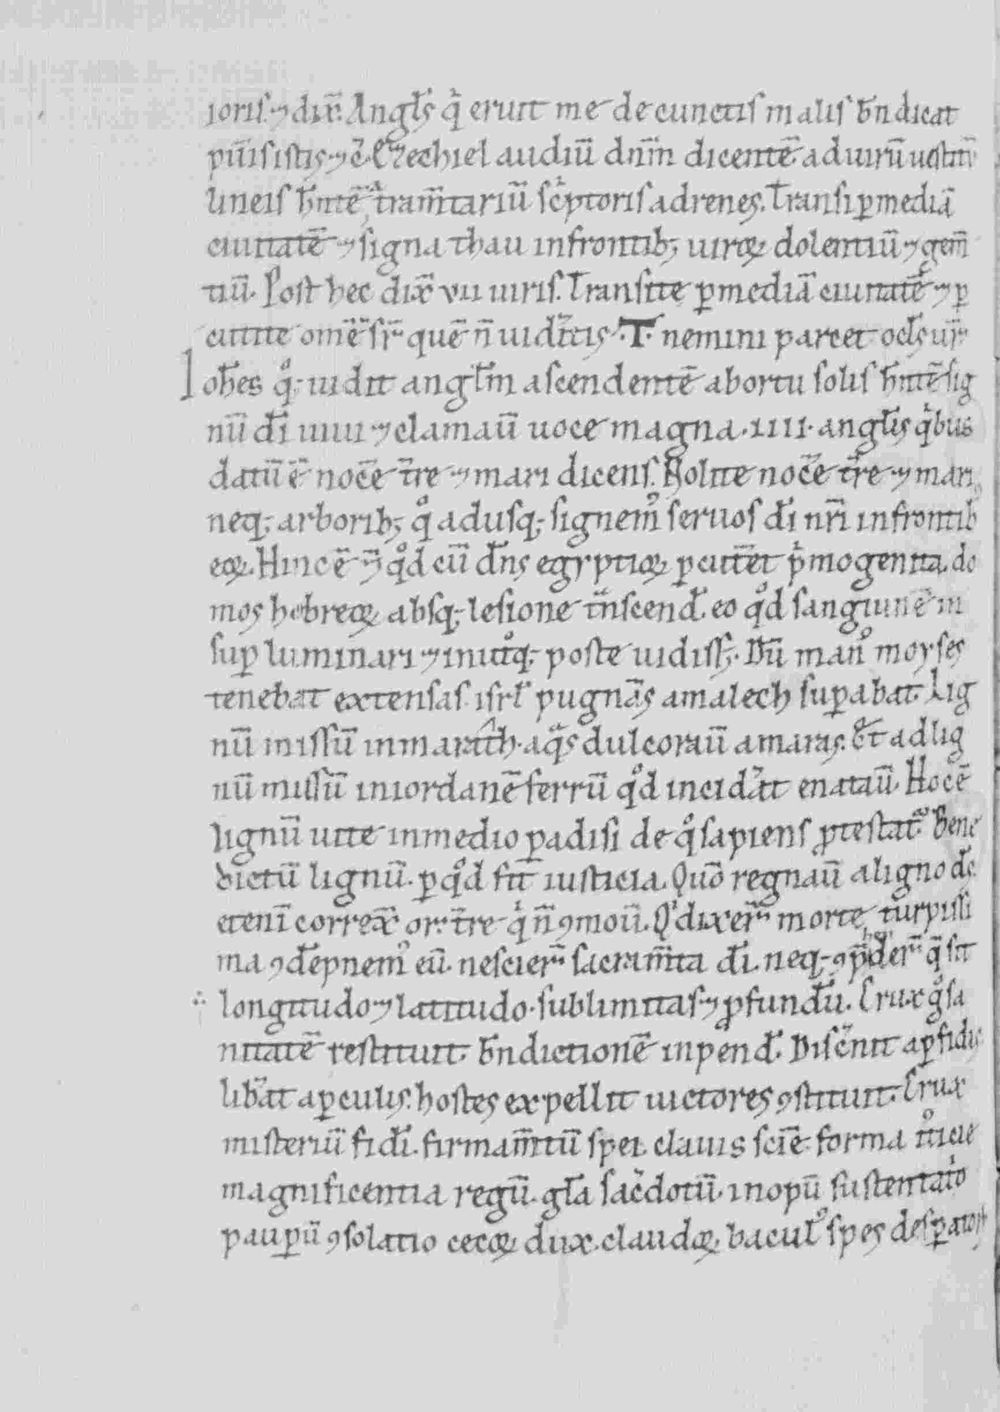 ioris. ⁊ dix̄. Angl̄s q̍ eruit me de cunctis malis b̄n dicat
pūis istis. ⁊ c̄. Ezechiel audiū dn̄m dicentē ad uirū uestitū
lineis h̄ntē atram̄tariū sc̍ptoris ad renes. Transi ꝑ mediā
ciuitatē ⁊ signa thau in frontib; uiroꝝ dolentiū ⁊ gem̄
tiū. Post hec dix̄ vii uiris. Transite ꝑ mediā ciuitatē ⁊ ꝑ
cutite om̄e sr̄ quē n̄ uidr̄itis .T. nemini parcet ocl̄s ur̄
Ioh̄es qͦ; uidit angl̄m ascendentē ab ortu solis h̄ntē sig
nū dī uiui ⁊ clamauī uoce magna .iiii. angl̄is q̍bus
datū ē nocē tr̄e ⁊ mari dicens. Nolite nocē tr̄e ⁊ mari
neq; arborib; qͦ adusq; signemꝰ seruos dī nr̄i in frontib
eoꝝ. Hinc ē ⁊ qͦd cū dn̄s egyptioꝝ ꝑcut̄et p̍mogenita. do
mos hebreoꝝ absq; lesione tn̄scend̄. eo qͦd sanguinē in
suꝑ luminari ⁊ in utͦq; poste uidiss;. Dū manꝰ moyses
tenebat extensas. isrl̄ pugnās amalech suꝑabat. Lig
nū missū in marath. aqͣs dulcorauī amaras. Et ad lig
nū missū in iordanē ferrū qͦd incidat̄ enatauī. Hoc ē
lignū uite in medio ꝑadisi de qͦ sapiens ꝓtestatꝰ. Bene
dictū lignū. ꝑ qͦd fit̄ iusticia. Quō regnauī a ligno d̄s
etenī correx̄ or. tr̄e q̍ n̄ ꝯmouī. Qͥ dixer̄ morte turpissi
ma ꝯdēpnemꝰ eū. nescier̄ sacram̄ta dī. neq; ꝯp̄hender̄ qͣ sit
longitudo ⁊ latitudo. sublimitas ⁊ ꝓfundū. Crux gͦ sa
nitatē restituit. b̄ndictionē inpend̄. Disc̄nit a ꝑfidis
lib̄at a ꝑculis. hostes expellit uictores ꝯstituit. Crux
misteriū fidī. firmam̄tū spei. clauis sciē. forma
magnificentia regū. gl̄a sac̄dotū. inopū sustentatͦo
pauꝑū ꝯsolatio cecoꝝ dux. claudoꝝ baculꝰ spes desꝑatoꝝ